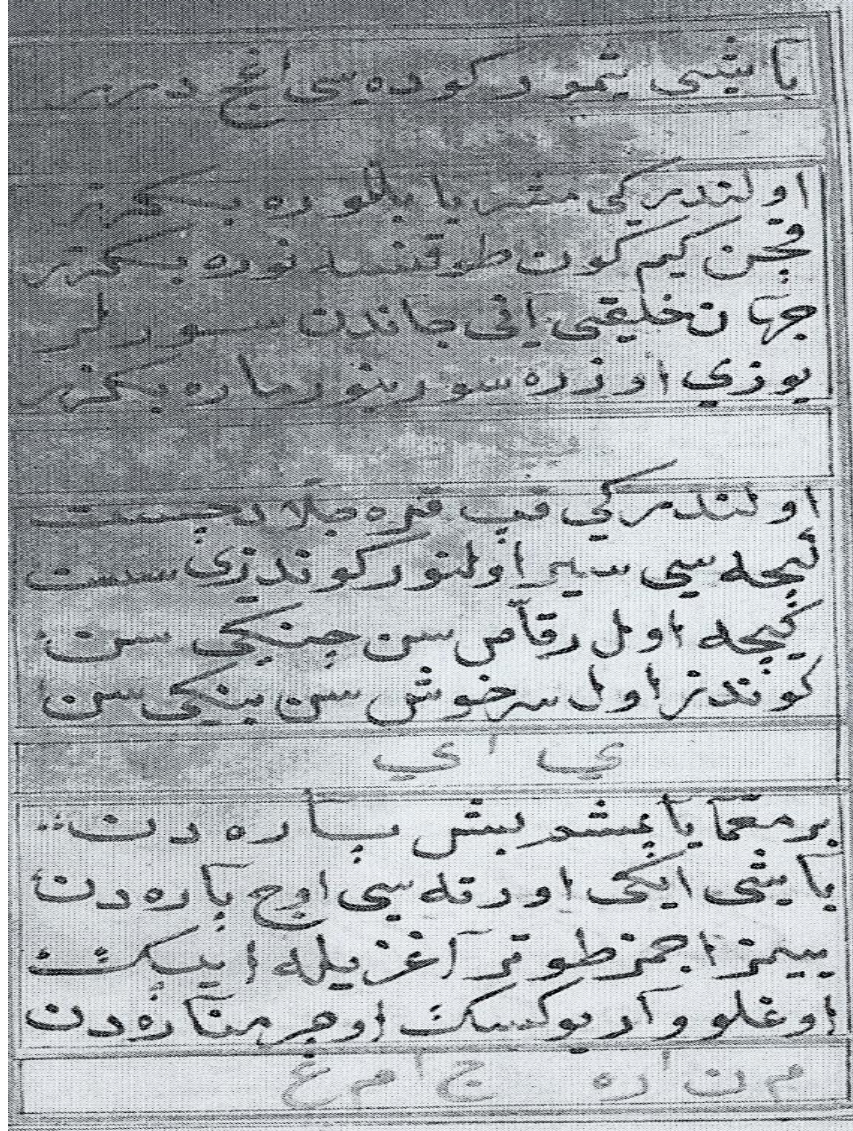 باشی تمور کوده سی اغچ در
اولندر کی منبر یا بللوره بکزر
قچن کیم کون طوقنسه نوره بکزر
جهان خلیقی انی جاندن سورلر
یوزی اوزره سورینور ماره بکزر
اولندر کی قپ قره جلاد چست
کیجه سی سیر اولنور کوندزی سست
کیجه اول رقاص سن چنکی سن
کوندز اول سرخوش سن بنکی سن
ي ا ي
بر معما یاپمشدر بش پاره دن
باشی ایکی اورته سی اوچ پاره دن
ییمز اچمز طوتر آغزیله ایپک
اوغلو وار یوکسک اوچر مناره دن
م ن ا ره ج ا م غ